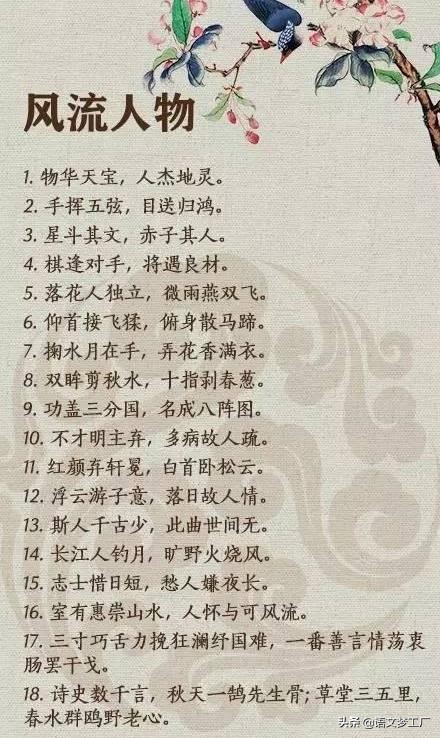 风流人物
1. 物华天宝，人杰地灵。
2. 手挥五弦，目送归鸿。
3. 星斗其文，赤子其人。
4. 棋逢对手，将遇良材。
5. 落花人独立，微雨燕双飞。
6. 仰首接飞猱，俯身散马蹄。
7. 掬水月在手，弄花香满衣。
8. 双眸剪秋水，十指剥春葱。
9. 功盖三分国，名成八阵图。
10. 不才明主弃，多病故人疏。
11. 红颜弃轩冕，白首卧松云。
12. 浮云游子意，落日故人情。
13. 斯人千古少，此曲世间无。
14. 长江人钓月，旷野火烧风。
15. 志士惜日短，愁人嫌夜长。
16. 室有惠崇山水，人怀与可风流。
17. 三寸巧舌力挽狂澜纾国难，一番善言情荡衷
肠罢干戈。
18. 诗史数千言，秋天一鹄先生骨；草堂三五里，
春水群鸥野老心。
头条 @语文梦工厂